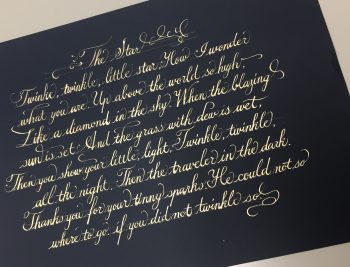 The Star
Twinkle, twinkle, little star, How I wonder
what you are. Up above the world so high,
Like a diamond in the sky. When the blazing
sun is set, And the grass with dew is wet,
Then you show your little light, Twinkle, twinkle,
all the night. Then the traveler in the dark.
Thanks you for your tinny sparks. He could not so
where to go if you did not twinkle so.